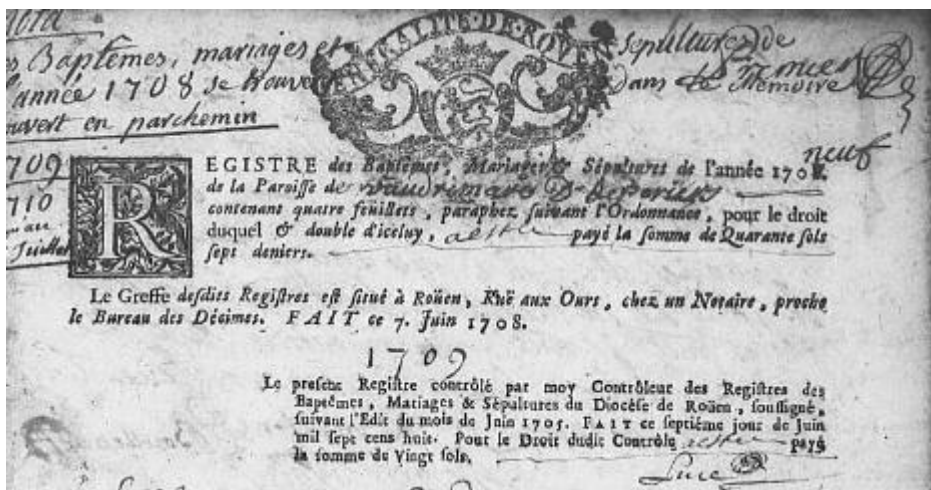 nota
Baptêmes, mariages et sepultures de
l'année 1708 se trouve dans le Mémoire
couvert en parchemin
GENERALITE·DE·ROVEN
1709
1710
Juillet
neuf
REGISTRE des Baptêmes, Mariages & Sépultures de l'année 1708.
de la Paroisse de
contenant quatre feüillets, paraphez suivant l'Ordonnance, pour le droit
duquel & double d'iceluy, a esté payé la somme de Quarante sols
sept deniers.
Le Greffe desdits Registres est situé à Roüen, Ruë aux Ours, chez un Notaire, proche
le Bureau des Décimes. FAIT ce 7. Juin 1708.
1709
Le present Registre contrôlé par moy Contrôleur des Registres des
Baptêmes, Mariages & Sépultures du Diocése de Roüen, soussigné,
suivant l'Edit du mois de Juin 1705. FAIT ce septiéme jour de Juin
mil sept cens huit. Pour le Droit dudit Contrôle a esté payé
la somme de Vingt sols.
Luce